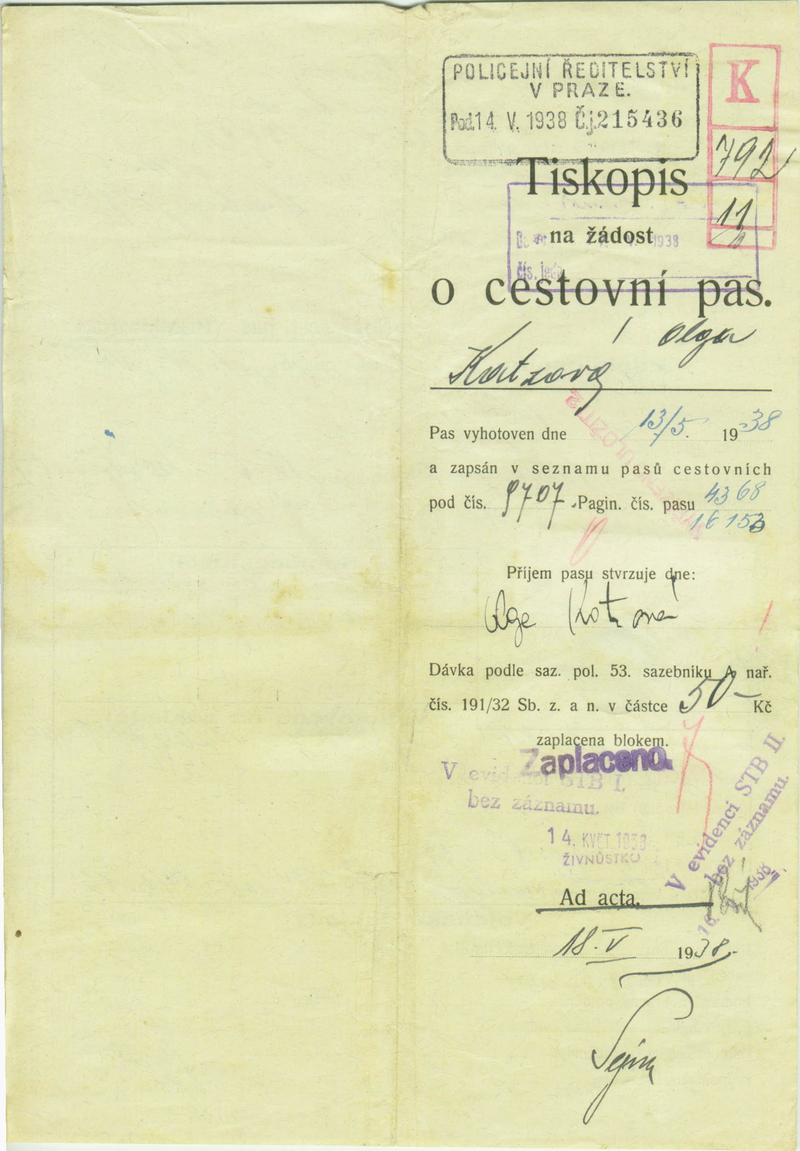 POLICEJNÍ ŘEDITELSTVÍ
V PRAZE.
Pod. 14. V. 1938 Č.j. 215436
K
792
11
Tiskopis
1938
na žádost
čís. jedn.
o cestovní pas.
Katzová Olga
Pas vyhotoven dne 13/5. 1938
a zapsán v seznamu pasů cestovních
pod čís. 9707 Pagin. čís. pasu 4368
16153
Příjem pasu stvrzuje dne:
Olga Katzová
Dávka podle saz. pol. 53. sazebníku A nař.
čís. 191/32 Sb. z. a n. v částce 50- Kč
zaplacena blokem.
Zaplaceno.
V evidenci STB I.
bez záznamu.
14. KVĚT. 1938
ŽIVNŮSTKO
V evidenci STB II.
bez záznamu.
Ad acta.
18. V 1938.